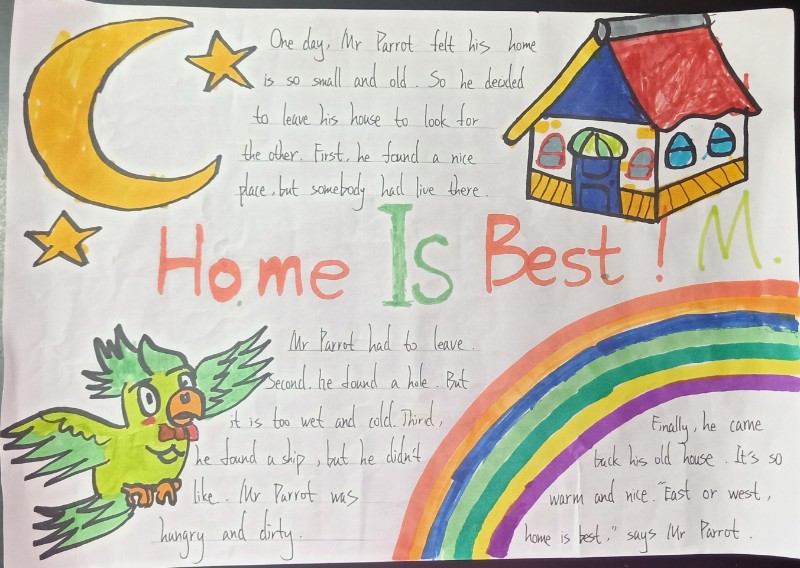 One day, Mr Parrot felt his home
is so small and old. So he decided
to leave his house to look for
the other. First, he found a nice
place, but somebody had live there.
Home Is Best! M.
Mr Parrot had to leave.
Second, he found a hole. But
it is too wet and cold. Third,
he found a ship, but he didn't
like. Mr Parrot was
hungry and dirty.
Finally, he came
back his old house. It's so
warm and nice. "East or west,
home is best," says Mr Parrot.